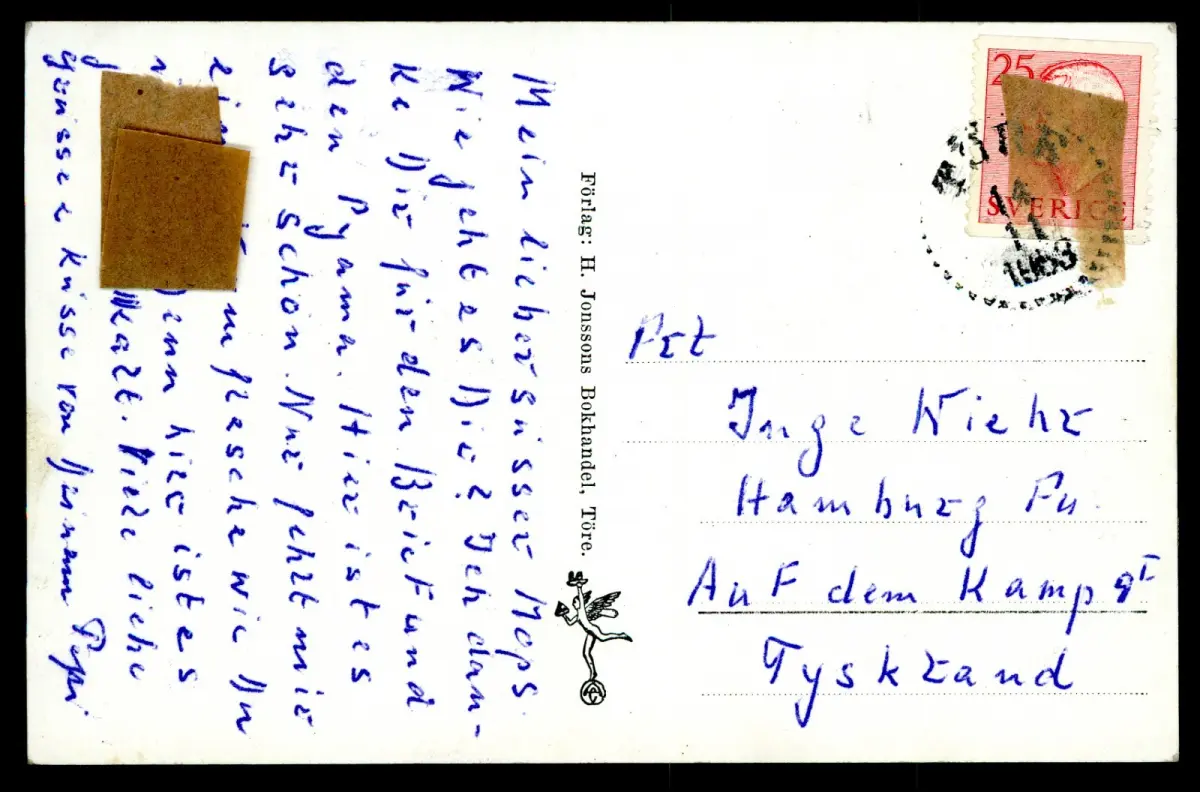 Mein lieber süsser Mops.
Wie geht es Dir? Ich dan-
ke Dir für den Brief und
den Pyama. Hier ist es
sehr schön. Nur fehlt mir
ein mflasche wie Du
denn hier ist es
kalt. Viele liebe
grüsse & küsse von Deinem Papi
Förlag: H. Jonssons Bokhandel, Töre.
25
SVERIGE
14
11
Frl
Inge Wiehr
Hamburg Fu.
Auf dem Kamp 9I
Tyskland